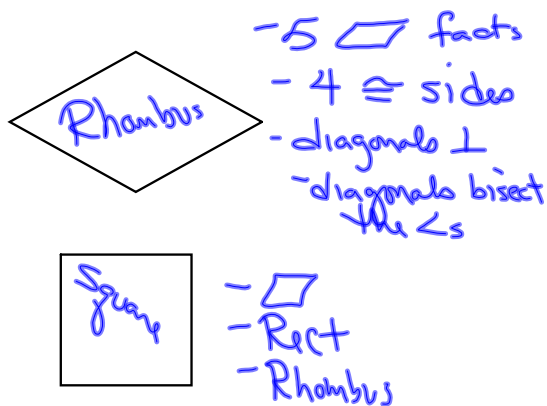 Rhombus
- 5 ▱ facts
- 4 ≅ sides
- diagonals ⊥
- diagonals bisect
the <s
Square
- ▱
- Rect
- Rhombus